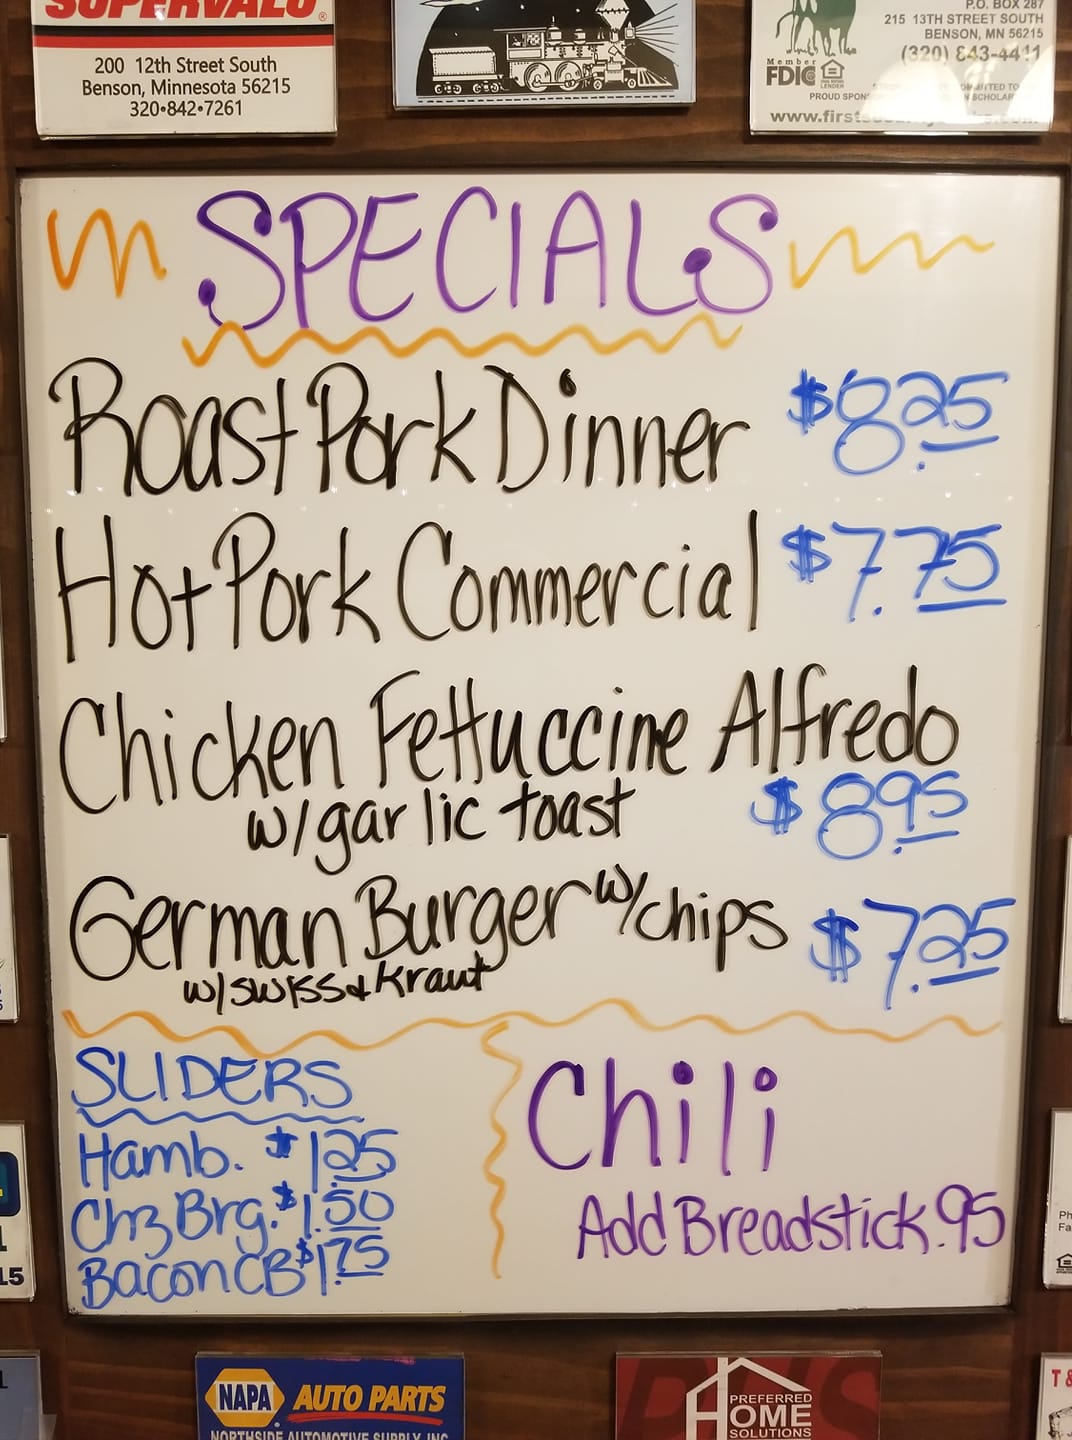 SUPERVALU®
200 12th Street South
Benson, Minnesota 56215
320•842•7261
P.O. BOX 287
215 13TH STREET SOUTH
BENSON, MN 56215
(320) 843-4411
Member
FDIC
LENDER
PROUD
SPECIALS
Roast Pork Dinner $8.25
Hot Pork Commercial $7.75
Chicken Fettuccine Alfredo
w/garlic toast $8.95
German Burger w/chips $7.25
w/swiss & Kraut
SLIDERS
Hamb. $1.25
Chz Brg. $1.50
Bacon CB $1.75
Chili
Add Breadstick .95
15
NAPA AUTO PARTS
NORTHSIDE AUTOMOTIVE SUPPLY, INC.
PREFERRED
HOME
SOLUTIONS
T &